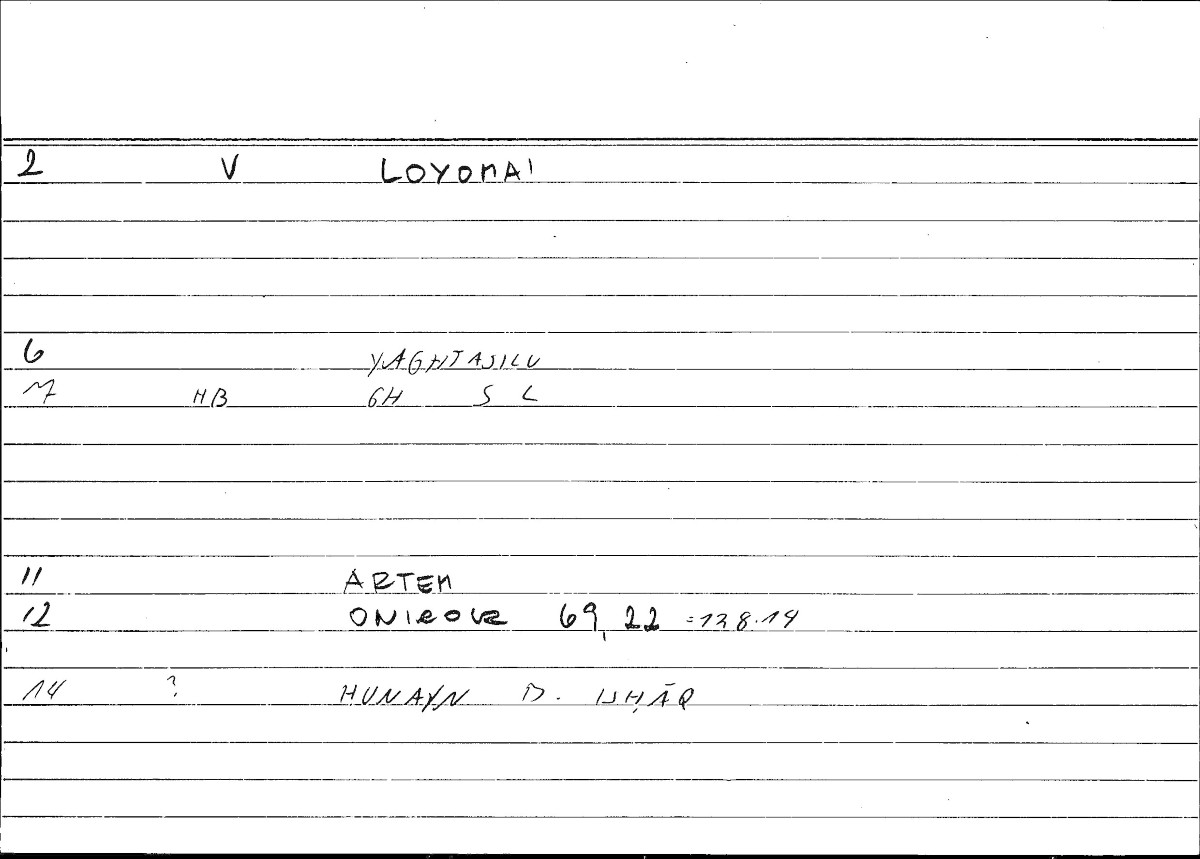 2 V LOYOMAI
6 YAGHTASILU
7 HB GH S L
11 ARTEM
12 ONIROKR 69, 22 =128.14
14 ? HUNAYN B. ISḤĀQ